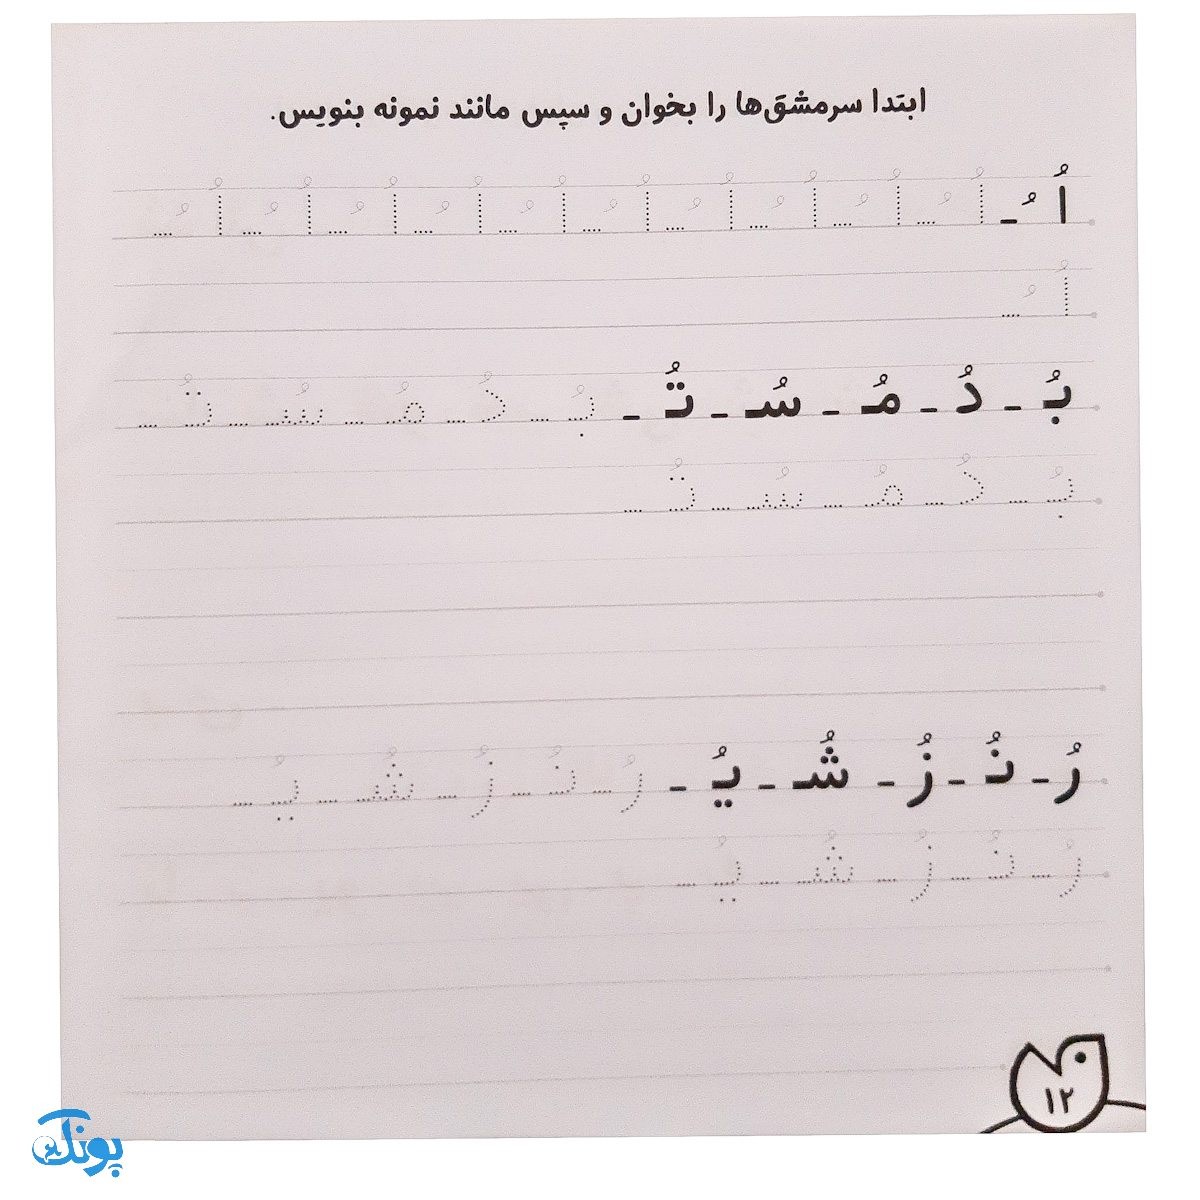 ابتدا سرمشق‌ها را بخوان و سپس مانند نمونه بنویس.
اُ ـُ اُ ـُ اُ ـُ اُ ـُ اُ ـُ اُ ـُ اُ ـُ اُ ـُ اُ ـُ اُ ـُ اُ ـُ
اُ ـُ
بُـ ـ دُ ـ مُـ ـ سُـ ـ تُـ ـ بُـ ـ دُ ـ مُـ ـ سُـ ـ تُـ ـ
بُـ ـ دُ ـ مُـ ـ سُـ ـ تُـ ـ
رُ ـ نُـ ـ زُ ـ شُـ ـ یُـ ـ رُ ـ نُـ ـ زُ ـ شُـ ـ یُـ ـ
رُ ـ نُـ ـ زُ ـ شُـ ـ یُـ ـ
۱۲
پونک